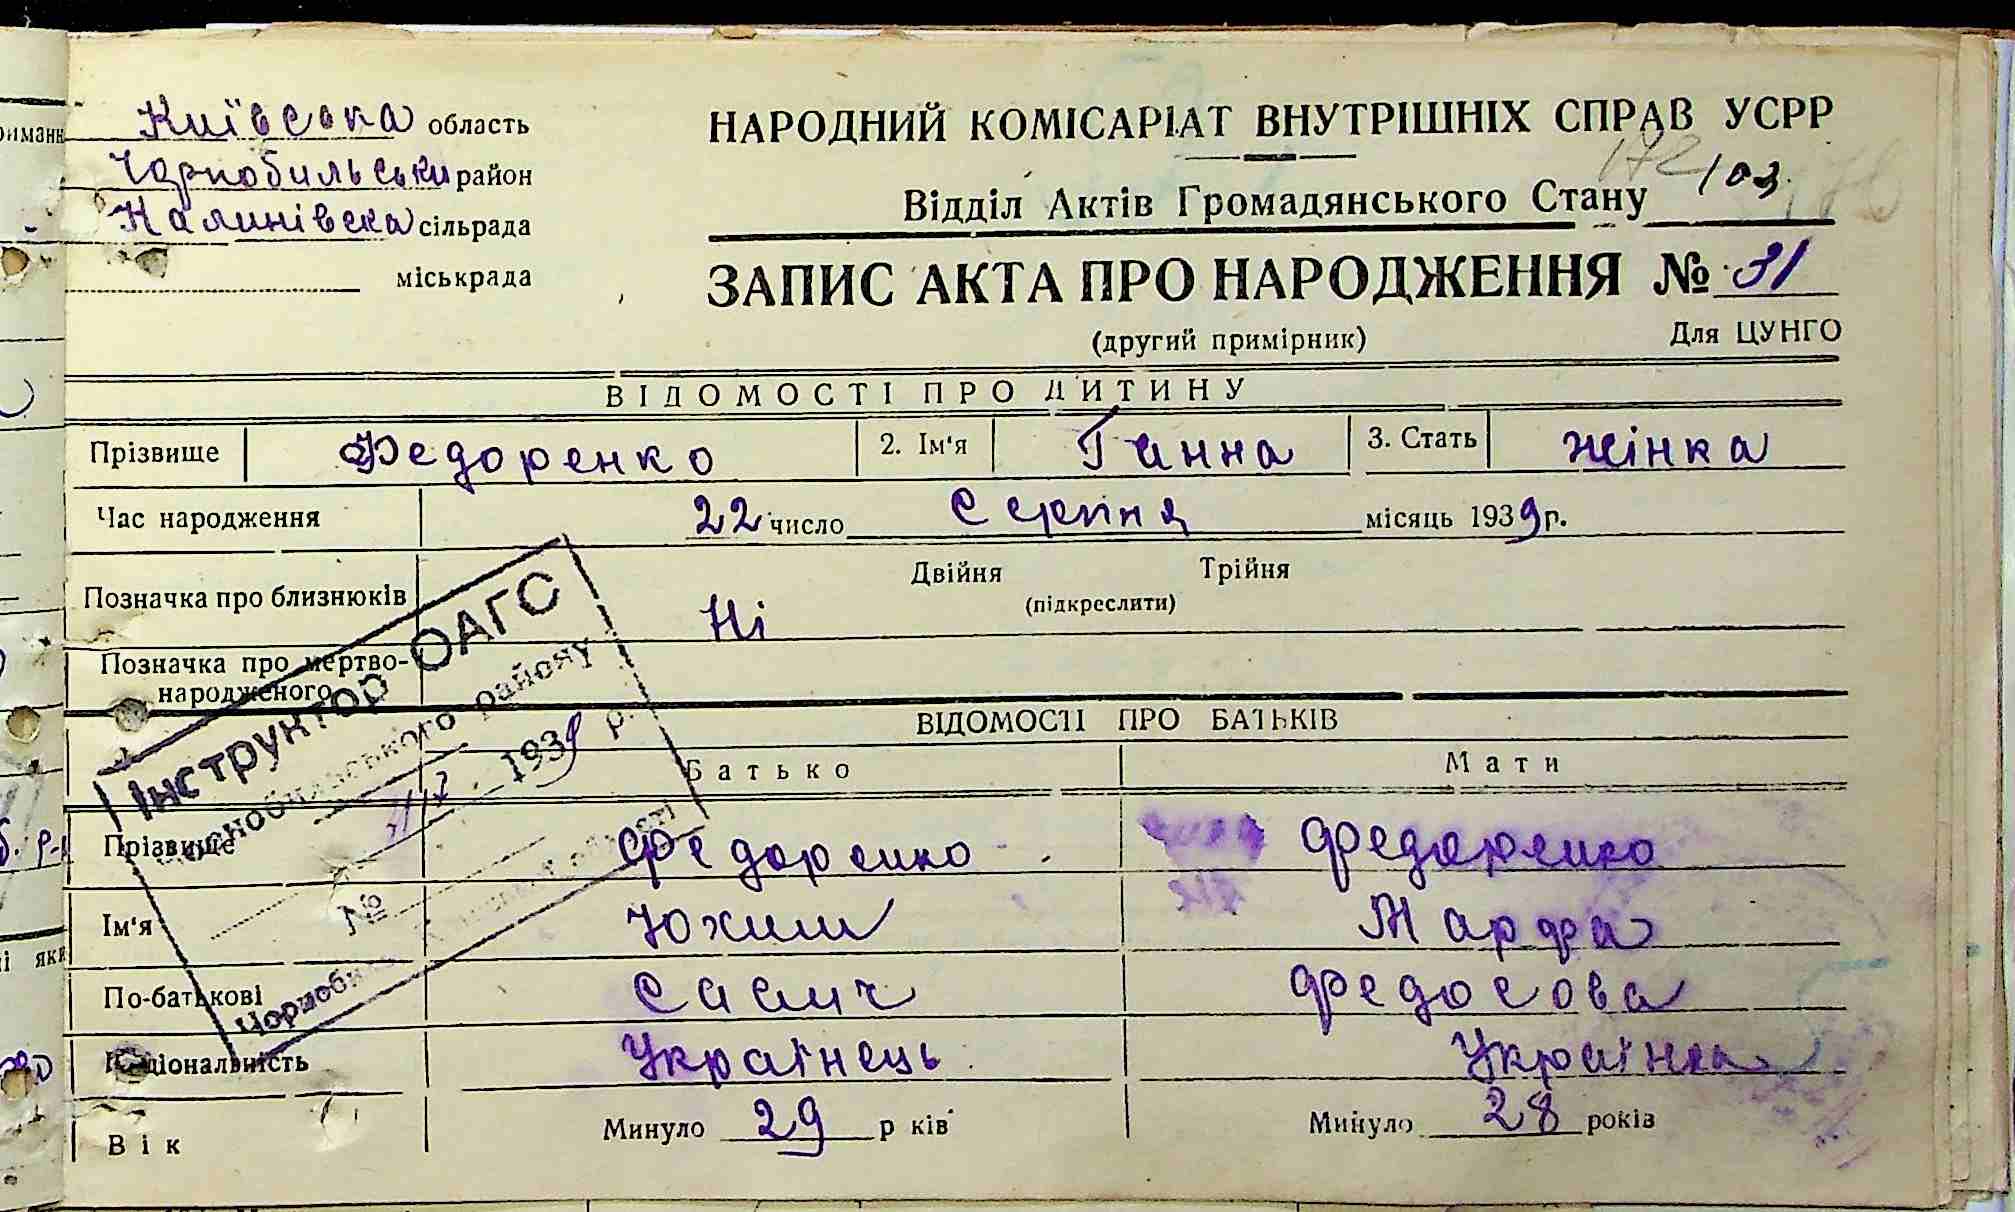 Київська область
Чорнобильськи район
Калинівска сільрада
міськрада
НАРОДНИЙ КОМІСАРІАТ ВНУТРІШНІХ СПРАВ УСРР
172/103
Відділ Актів Громадянського Стану
ЗАПИС АКТА ПРО НАРОДЖЕННЯ № 31
(другий примірник)
Для ЦУНГО
ВІДОМОСТІ ПРО ДИТИНУ
Прізвище Федоренко 2. Ім'я Ганна 3. Стать жінка
Час народження 22 число Серпня місяць 1939 р.
Позначка про близнюків Ні Двійня Трійня
(підкреслити)
Позначка про мертво-
народженого
ВІДОМОСТІ ПРО БАТЬКІВ
Батько Мати
Прізвище Федоренко Федоренко
Ім'я Юхим Марфа
По-батькові Федосова
Національність Украінець Украінка
Вік Минуло 29 р ків Минуло 28 років
Інструктор ОАГС
Чорнобильського району
1939 р.
№